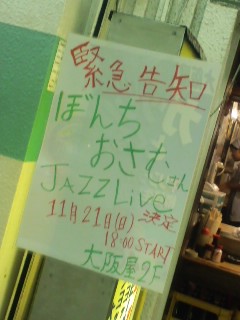 緊急告知
ぼんち
おさむさん
JAZZ Live
決定
11月21日(日)
18:00 START
大阪屋2F